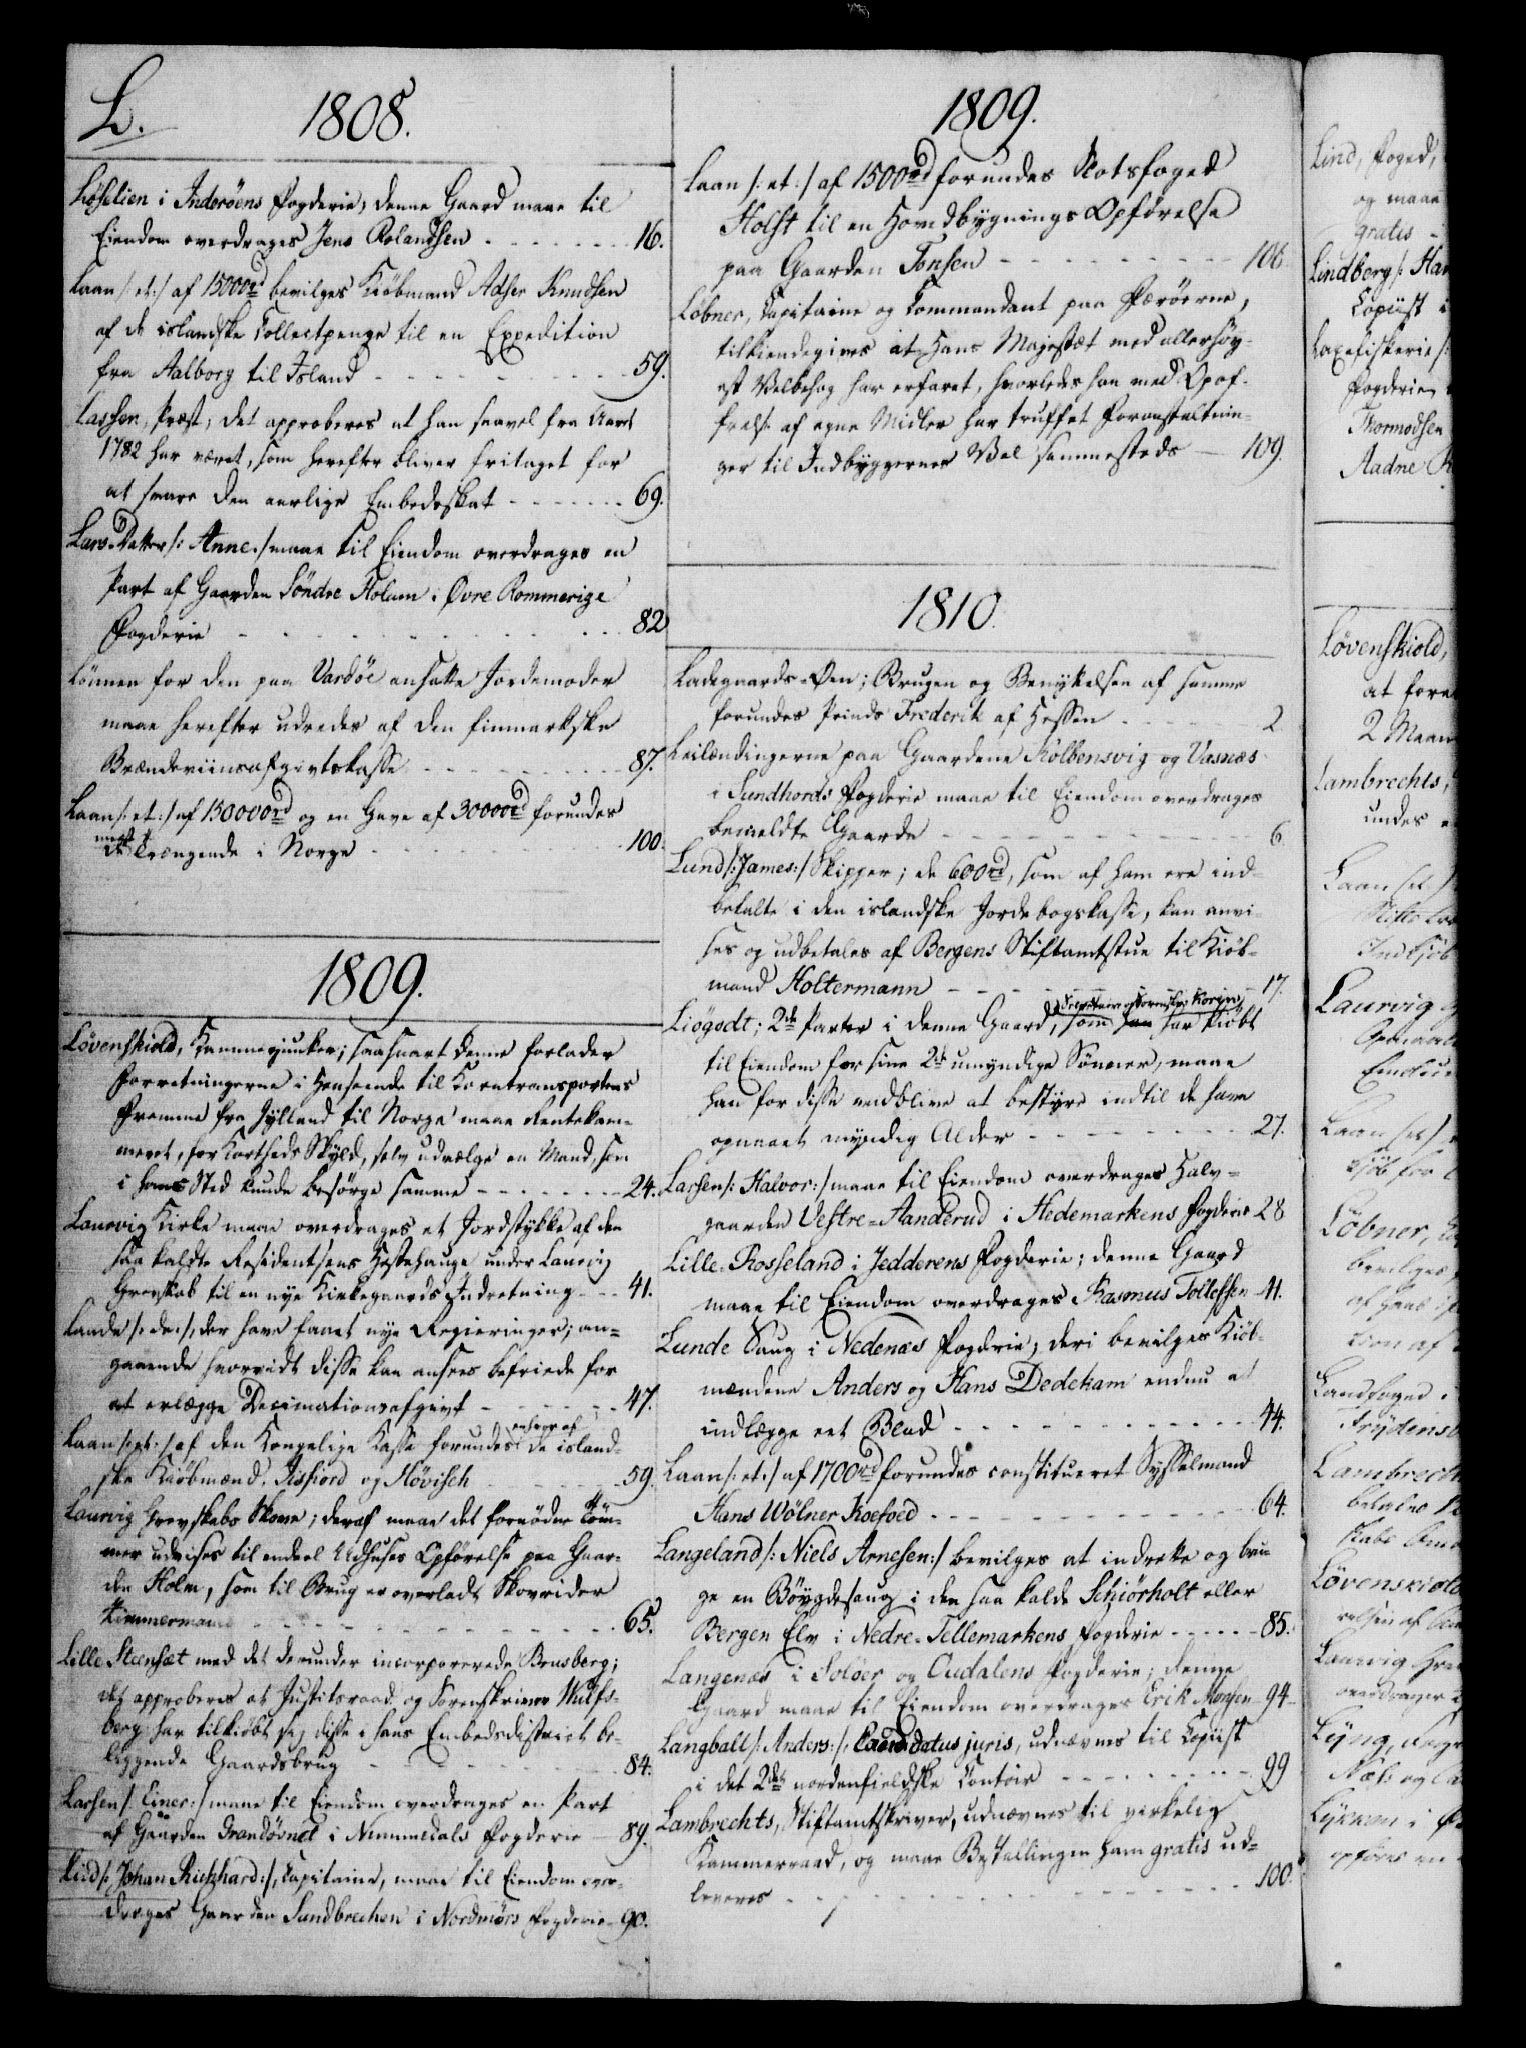 L.
1808.
Löfelien i Inderöens Fogderie, denne Gaard maae til
Eiendom overdrages Jens Rolandsen - - - - - - 16.
Laan /: et :/ af 15000 rd bevilges Kiöbmand Adser Knudsen
af de islandske Collectpenge til en Expedition
fra Aalborg til Island - - - - - - - - 59.
Lassen, Præst, det approberes at han saavel fra Aaret
1782 har været, som herefter bliver fritaget for
at svare den aarlige Embedsskat - - - - - - 69.
Lars Datter /: Anne :/ maae til Eiendom overdrages en
Part af Gaarden Söndre Holum i Øvre Rommerige
Fogderie - - - - - - - - - - 82
Lönnen for den paa Vardöe ansatte Jordemoder
maae herefter udredes af den finmarkske
Brændeviinsafgivtskasse - - - - - - - 87.
Laan /: et :/ af 150000 rd og en Gave af 30000 rd forundes
de meest trængende i Norge - - - - - - - 100.
1809.
Lövenskiold, Kammerjunker; saasnart denne forlader
Forretningerne i Henseende til Korntransportens
Fremme fra Jylland til Norge maae Rentekam-
meret, for Kortheds Skyld, selv udvælge en Mand, som
i hans Sted kunde besörge samme - - - - - - 24.
Laurvig Kirke maae overdrages et Jordstykke af den
saa kaldte Residentsens Hestehauge under Laurvig
Grevskab til en nye Kirkegaards Indretning - - - 41.
Lande /: de :/, der have faaet nye Regieringer; an-
gaaende hvorvidt disse kan ansees befriede for
at erlægge Decimationsafgivt - - - - - - 47.
Laan /: et :/ af den Kongelige Kasse forundes enhver af de island-
ske Kiöbmænd, Isfiord og Hövisch - - - - - 59.
Laurvig Grevskabs Skove; deraf maae det fornödne Töm-
mer udvises til endeel Udhuses Opförelse paa Gaar-
den Holm, som til Brug er overladt Skovrider
Zimmermann - - - - - - - - - - 65.
Lille Steensæt med det derunder incorporerede Brusberg;
det approberes at Justitsraad og Sorenskriver Wulfs-
berg har tilkiöbt sig disse i hans Embedsdistrict be-
liggende Gaardsbrug - - - - - - - - 84.
Larsen /: Einer :/ maae til Eiendom overdrages en Part
af Gaarden Grandörnet i Nummedals Fogderie - 89.
Lied /: Johan Richhard :/, Capitaine, maae til Eiendom over-
drages Gaarden Sundbrechen i Nordmörs Fogderie - 90.
1809.
Laan /: et :/ af 1500 rd forundes Slotsfoged
Holst til en Hovedbygnings Opförelse
paa Gaarden Tonsen - - - - - - - - 108
Löbner, Capitaine og Commandant paa Færöerne,
tilkiendegives at Hans Majestæt med allerhöy-
est Velbehag har erfaret, hvorledes han med Opof-
frelse af egne Midler har truffet Foranstaltnin-
ger til Indbyggernes Vel sammesteds - 109.
1810.
Ladegaards-Øen; Brugen og Benyttelsen af samme
forundes Prinds Frederik af Hessen - - - - 2
Leilændingerne paa Gaardene Kolbensvig og Vasnæs
i Sundhords Fogderie maae til Eiendom overdrages
bemeldte Gaarde - - - - - - - - - 6
Lund /: James :/ Skipper; de 600 rd, som af ham ere ind-
betalte i den islandske Jordebogskasse, kan anvi-
ses og udbetales af Bergens Stiftamtstue til Kiöb-
mand Holtermann - - - - - - - - - 17.
Liögodt; 2de Parter i denne Gaard, som Sorenskr: Koren har kiöbt
til Eiendom for sine 2de umyndige Sönner, maae
han for disse vedblive at bestyre indtil de have
opnaaet myndig Alder - - - - - - - - 27.
Larsen /: Halvor :/ maae til Eiendom overdrages Halv-
gaarden Vestre-Handerud i Hedemarkens Fogderie 28
Lille-Rosseland i Jedderens Fogderie; denne Gaard
maae til Eiendom overdrages Rasmus Tollefsen - 41.
Lunde Saug i Nedenæs Fogderie; deri bevilges Kiöb-
mændene Anders og Hans Dedekam endnu at
indlægge eet Blad - - - - - - - - - 44.
Laan /: et :/ af 1700 rd forundes constitueret Sysselmand
Hans Wölner Koefoed - - - - - - - - 64.
Langeland /: Niels Arnesen :/ bevilges at indrette og bru-
ge en Böygdesaug i den saa kalde Schiörholt eller
Bergen Elv i Nedre-Tellemarkens Fogderie - - - - - 85.
Langenæs i Solöer og Oudalens Fogderie; denne
Gaard maae til Eiendom overdrages Erik Monsen - 94
Langball /: Anders :/, Candidatus juris, udnævnes til Copiist
i det 2det nordenfieldske Contoir - - - - - - - - 99
Lambrechts, Stiftamtskriver, udnævnes til virkelig
Kammerraad, og maae Bestallingen ham gratis ud-
leveres - - - - - - - - - - - 100.
Lind, Foged,
og maae
gratis
Lindberg /: Han
Copiist i
Laxefiskerie /:
Fogderie,
Thormodsen
Aadne
Lövenskiold,
at fore
2 Maan
Lambrechts,
undes
Laan /: et :/
Stifts
Indkiöb
Laurvig
Eendeel
Laan /: et :/
kiöb for
Löbner,
bevilges
af
tion af
Landfoged i
Frydensb
Lambrech
betales
Lövenskiold
Laurvig Grev
overdrages
Lyng,
Næts og
i
opföres en